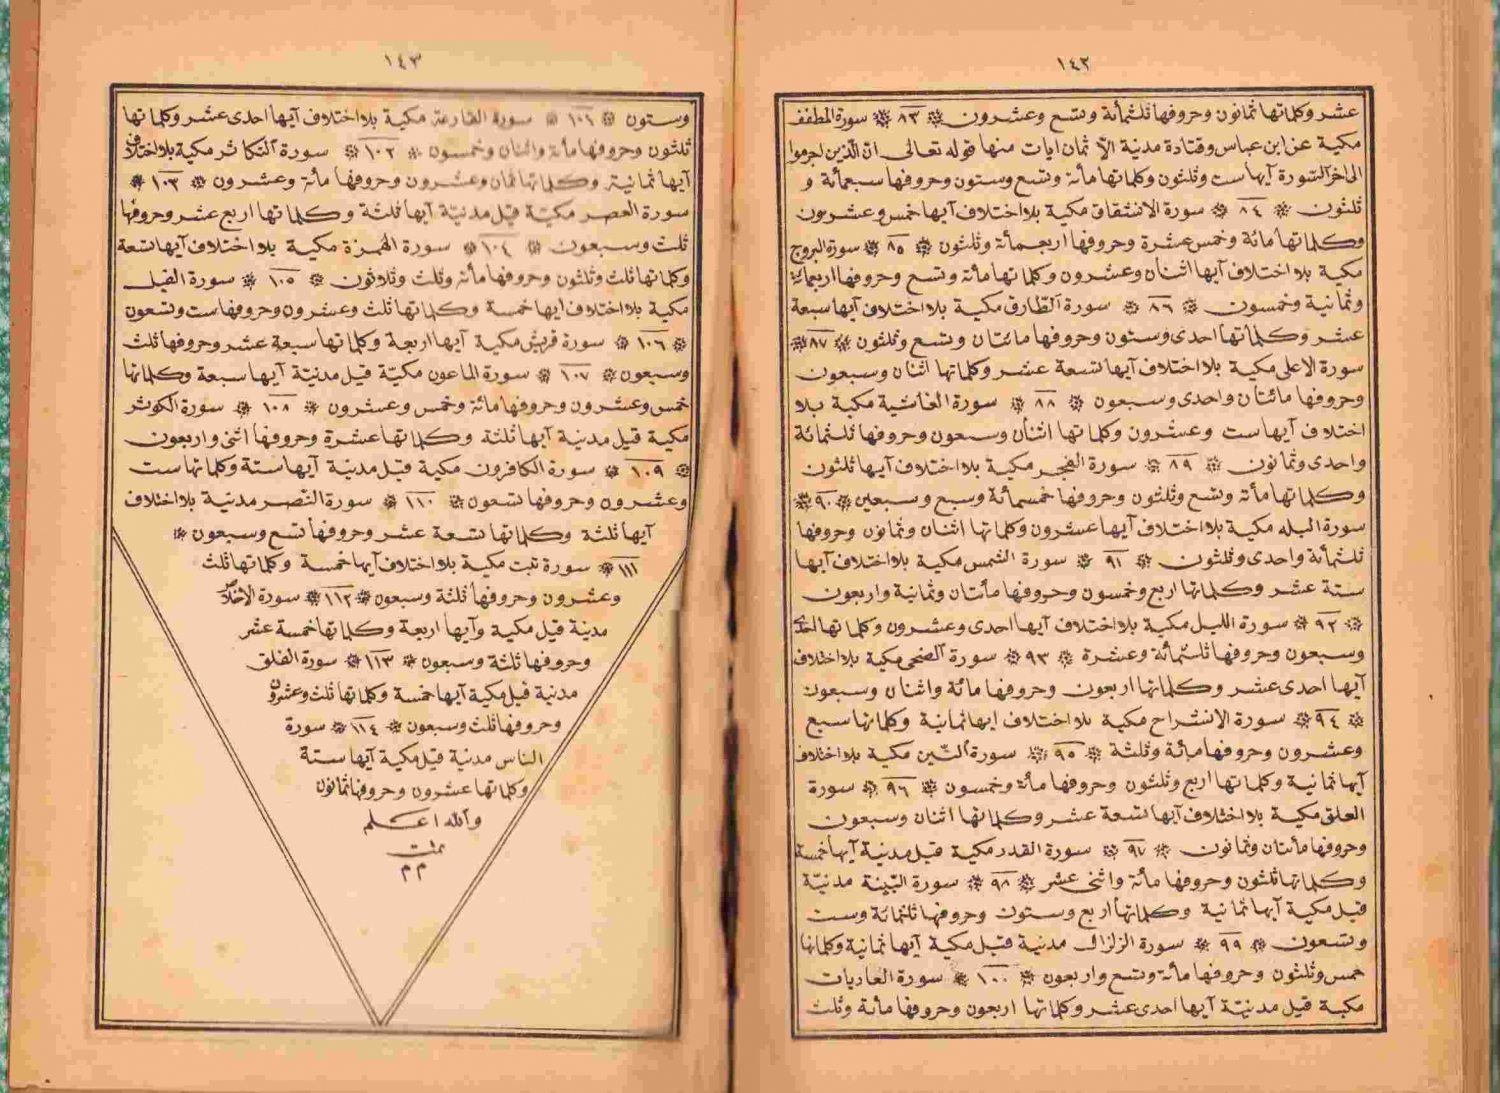 ١٤٢
عشر وكلماتها ثمانون وحروفها ثلثمأئة وتسع وعشرون ۞ ٨٣ ۞ سورة المطفف
مكية عن ابن عباس وقتادة مدنية الاّ ثمان ايات منها قوله تعالى انّ الّذين اجرموا
الى اخر السّورة آيها ست وثلثون وكلماتها مأئة وتسع وستون وحروفها سبعمأئة و
ثلثون ۞ ٨٤ ۞ سورة الانشقاق مكية بلا اختلاف آيها خمس وعشريون
وكلماتها مائة وخمس عشرة وحروفها اربعمأئة وثلثون ۞ ٨٥ ۞ سورة البروج
مكية بلا اختلاف آيها اثنان وعشرون وكلماتها مأئة وتسع وحروفها اربعمائة
وثمانية وخمسون ۞ ٨٦ ۞ سورة الطّارق مكية بلا اختلاف آيها سبعة
عشر وكلماتها احدى وستون وحروفها مائتان وتسع وثلثون ۞ ٨٧ ۞
سورة الاعلى مكية بلا اختلاف آيها تسعة عشر وكلماتها اثنان وسبعون
وحروفها مائتان واحدى وسبعون ۞ ٨٨ ۞ سورة الغاشية مكية بلا
اختلاف آيها ست وعشرون وكلماتها اثنان وسعون وحروفها ثلثمائة
واحدى وثمانون ۞ ٨٩ ۞ سورة الفجر مكية بلا اختلاف آيها ثلثون
وكلماتها مأئة وتسع وثلثون وحروفها خمسمأئة وسبع وسبعين ۞ ٩٠ ۞
سورة البلد مكية بلا اختلاف آيها عشرون وكلماتها اثنان وثمانون وحروفها
ثلثمأئة واحدى وثلثون ۞ ٩١ ۞ سورة الشمس مكية بلا اختلاف آيها
ستة عشر وكلماتها اربع وخمسون وحروفها مأئتان وثمانية واربعون
۞ ٩٢ ۞ سورة الليل مكية بلا اختلاف آيها احدى وعشرون وكلماتها احدى
وسبعون وحروفها ثلثمائة وعشرة ۞ ٩٣ ۞ سورة الضحى مكية بلا اختلاف
آيها احدى عشر وكلماتها اربعون وحروفها مائة واثنان وسبعون
۞ ٩٤ ۞ سورة الانشراح مكية بلا اختلاف ايها ثمانية وكلماتها سبع
وعشرون وحروفها مائة وثلثة ۞ ٩٥ ۞ سورة التّين مكية بلا اختلاف
آيها ثمانية وكلماتها اربع وثلثون وحروفها مأئة وخمسون ۞ ٩٦ ۞ سورة
العلق مكية بلا اختلاف آيها تسعة عشر وكلماتها اثنان وسبعون
وحروفها مأئتان وثمانون ۞ ٩٧ ۞ سورة القدر مكية قيل مدنية آيها خمسة
وكلماتها ثلثون وحروفها مأئة واثنى عشر ۞ ٩٨ ۞ سورة البّينة مدنيّة
قيل مكية آيها ثمانية وكلماتها اربع وستون وحروفها ثلثمائة وست
وتسعون ۞ ٩٩ ۞ سورة الزلزال مدنية قيل مكية آيها ثمانية وكلماتها
خمس وثلثون وحروفها مأئة وتسع واربعون ۞ ١٠٠ ۞ سورة العاديات
مكية قيل مدنيّة آيها احدى عشر وكلماتها اربعون وحروفها مأئة وثلث
١٤٣
وستون ۞ ١٠١ ۞ سورة القارعة مكية بلا اختلاف آيها احدى عشر وكلماتها
ثلثون وحروفها مأئة واثنان وخمسون ۞ ١٠٢ ۞ سورة التكاثر مكية بلا اختلاف
آيها ثمانية وكلماتها ثمان وعشرون وحروفها مأئة وعشرون ۞ ١٠٣ ۞
سورة العصر مكيّة قيل مدنيّة آيها ثلثة وكلماتها اربع عشر وحروفها
ثلث وسبعون ۞ ١٠٤ ۞ سورة الهمزة مكية بلا اختلاف آيها تسعة
وكلماتها ثلث وثلثون وحروفها مأئة وثلث وثلاثون ۞ ١٠٥ ۞ سورة الفيل
مكية بلا اختلاف ايها خمسة وكلماتها ثلث وعشرون وحروفها ست وتسعون
۞ ١٠٦ ۞ سورة قريش مكية آيها اربعة وكلماتها سبعة عشر وحروفها ثلث
وسبعون ۞ ١٠٧ ۞ سورة الماعون مكيّة قيل مدنيّة آيها سبعة وكلماتها
خمس وعشرون وحروفها مائة وخمس وعشرون ۞ ١٠٨ ۞ سورة الكوثر
مكية قيل مدنية آيها ثلثة وكلماتها عشرة وحروفها اثنى واربعون
۞ ١٠٩ ۞ سورة الكافرون مكية قيل مدنية آيها ستة وكلماتها ست
وعشرون وحروفها تسعون ۞ ١١٠ ۞ سورة النّصر مدنية بلا اختلاف
آيها ثلثة وكلماتها تسعة عشر وحروفها تسع وسبعون ۞
١١١ ۞ سورة تبت مكية بلا اختلاف آيها خمسة وكلماتها ثلث
وعشرون وحروفها ثلثة وسبعون ۞ ١١٢ ۞ سورة الاخلاص
مدنية قيل مكية وآيها اربعة وكلماتها خمسة عشر
وحروفها ثلثة وسبعون ۞ ١١٣ ۞ سورة الفلق
مدنية قيل مكية آيها خمسة وكلماتها ثلث وعشرون
وحروفها ثلث وسبعون ۞ ١١٤ ۞ سورة
الناس مدنية قيل مكية آيها ستة
وكلماتها عشرون وحروفها ثمانون
والله اعلم
تمت
م م